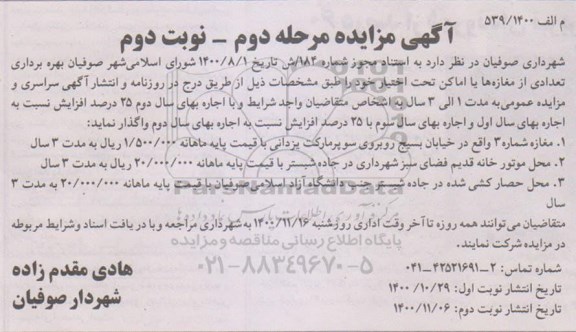 م الف ۵۳۹/۱۴۰۰
آگهی مزایده مرحله دوم - نوبت دوم
شهرداری صوفیان در نظر دارد به استناد مجوز شماره ۱۸۳/ش تاریخ ۱۴۰۰/۸/۱ شورای اسلامی شهر صوفیان بهره برداری
تعدادی از مغازه‌ها یا اماکن تحت اختیار خود را طبق مشخصات ذیل از طریق درج در روزنامه و انتشار آگهی سراسری و
مزایده عمومی به مدت ۱ الی ۳ سال به اشخاص متقاضیان واجد شرایط و با اجاره بهای سال دوم ۲۵ درصد افزایش نسبت به
اجاره بهای سال اول و اجاره بهای سال سوم با ۲۵ درصد افزایش نسبت به اجاره بهای سال دوم واگذار نماید:
۱. مغازه شماره ۳ واقع در خیابان بسیج روبروی سوپرمارکت یزدانی با قیمت پایه ماهانه ۱/۵۰۰/۰۰۰ ریال به مدت ۳ سال
۲. محل موتور خانه قدیم فضای سبز شهرداری در جاده شبستر با قیمت پایه ماهانه ۲۰/۰۰۰/۰۰۰ ریال به مدت ۳ سال
۳. محل حصار کشی شده در جاده شبستر جنب دانشگاه آزاد اسلامی صوفیان با قیمت پایه ماهانه ۲۰/۰۰۰/۰۰۰ به مدت ۳
سال
متقاضیان می‌توانند همه روزه تا آخر وقت اداری روز شنبه ۱۴۰۰/۱۱/۱۶ به شهرداری مراجعه و با دریافت اسناد و شرایط مربوطه
در مزایده شرکت نمایند.
پایگاه اطلاع رسانی مناقصه و مزایده
شماره تماس: ۲-۴۲۵۲۱۶۹۱-۰۴۱
۰۲۱-۸۸۳۴۹۶۷۰-۵
هادی مقدم زاده
تاریخ انتشار نوبت اول: ۱۴۰۰/۱۰/۲۹
شهردار صوفیان
تاریخ انتشار نوبت دوم: ۱۴۰۰/۱۱/۰۶
ParsNamadData